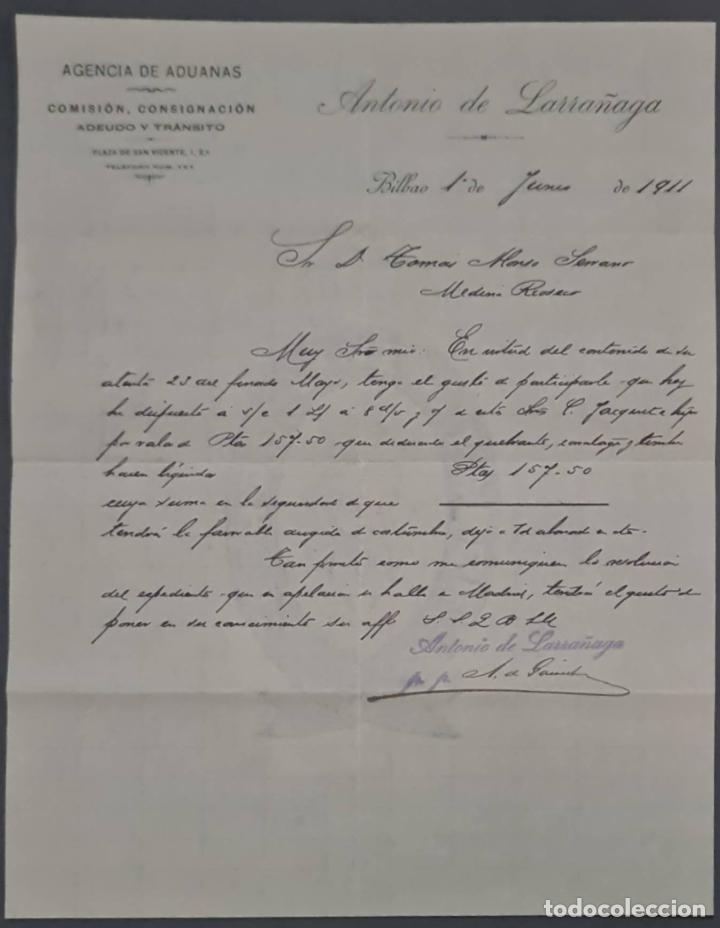 AGENCIA DE ADUANAS
COMISIÓN, CONSIGNACIÓN
ADEUDO Y TRÁNSITO
PLAZA DE SAN VICENTE, 1, 2º
TELÉFONO NÚM.
Antonio de Larrañaga
Bilbao 1º de Junio de 1911
Sr D Tomás Alonso Serrano
Medina Rioseco
Muy Sr mio: En virtud del contenido de su
atenta 23 del finado Mayo, tengo el gusto de participarle que hoy
he dispuesto a s/c 1 L/ á 8 d/v y o/ de esta Sres C. Jacquet e hijos
por valor de Ptas 157-50 que deducido el quebranto, y timbre
hacen líquidas Ptas 157-50
cuya suma en la seguridad de que
tendrá la favorable acogida de costumbre, dejo a Vd abonado en cta.
Tan pronto como me comuniquen la resolución
del expediente que en apelación se halla en Madrid, tendré el gusto de
poner en su conocimiento su aff S. S. Q B S M
Antonio de Larrañaga
A. de
todocoleccion.net